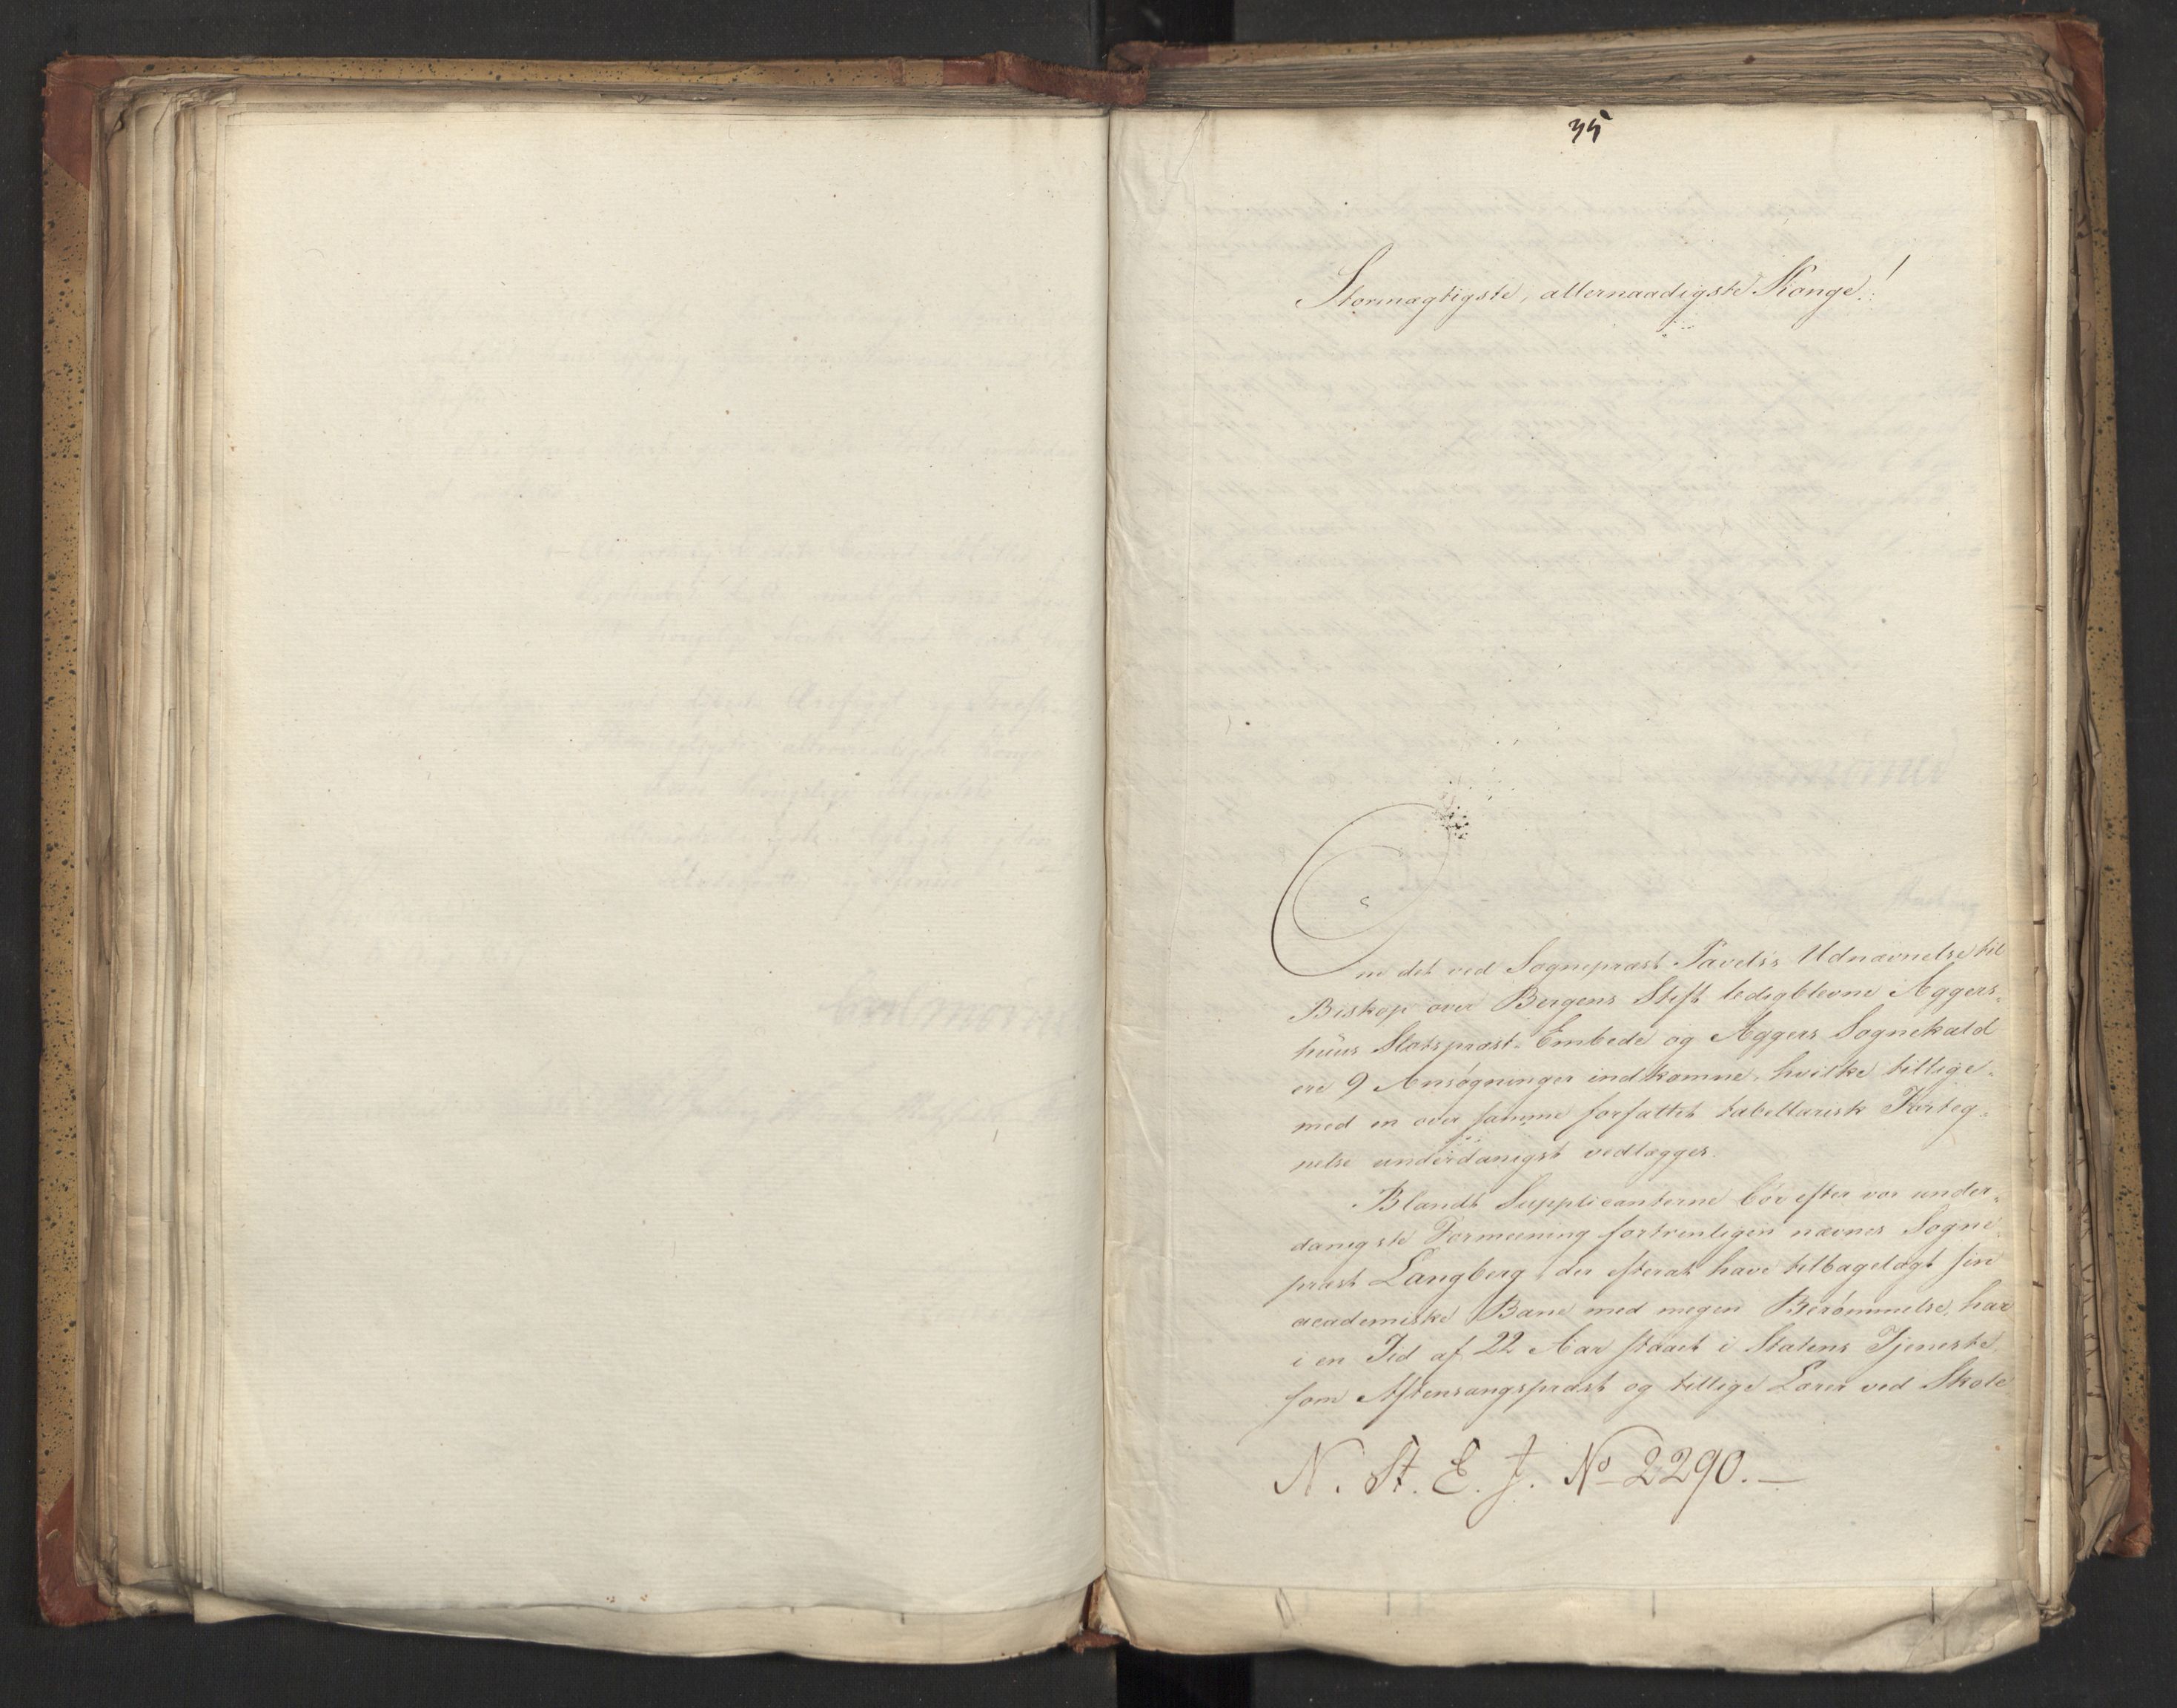 35
Stormægtigste, allernaadigste Konge!
Om det ved Sognepræst Pavels's Udnævnelse til
Biskop over Bergens Stift ledigblevne Aggers-
huus Slotspræst-Embede og Aggers Sognekald
ere 9 Ansøgninger indkomne, hvilke tillige-
med en over samme forfattet tabellarisk Forteg-
nelse underdanigst vedlægges.
Blandt Supplicanterne bør efter vor under-
danigste Formeening fortrinligen nævnes Sogne
præst Langberg, der efterat have tilbagelagt sin
academiske Bane med megen Berømmelse, har
i en Tid af 22 Aar staaet i Statens Tjeneste,
som Aftensangspræst og tillige Lærer ved Skole
N. St. E. J. No 2290.—